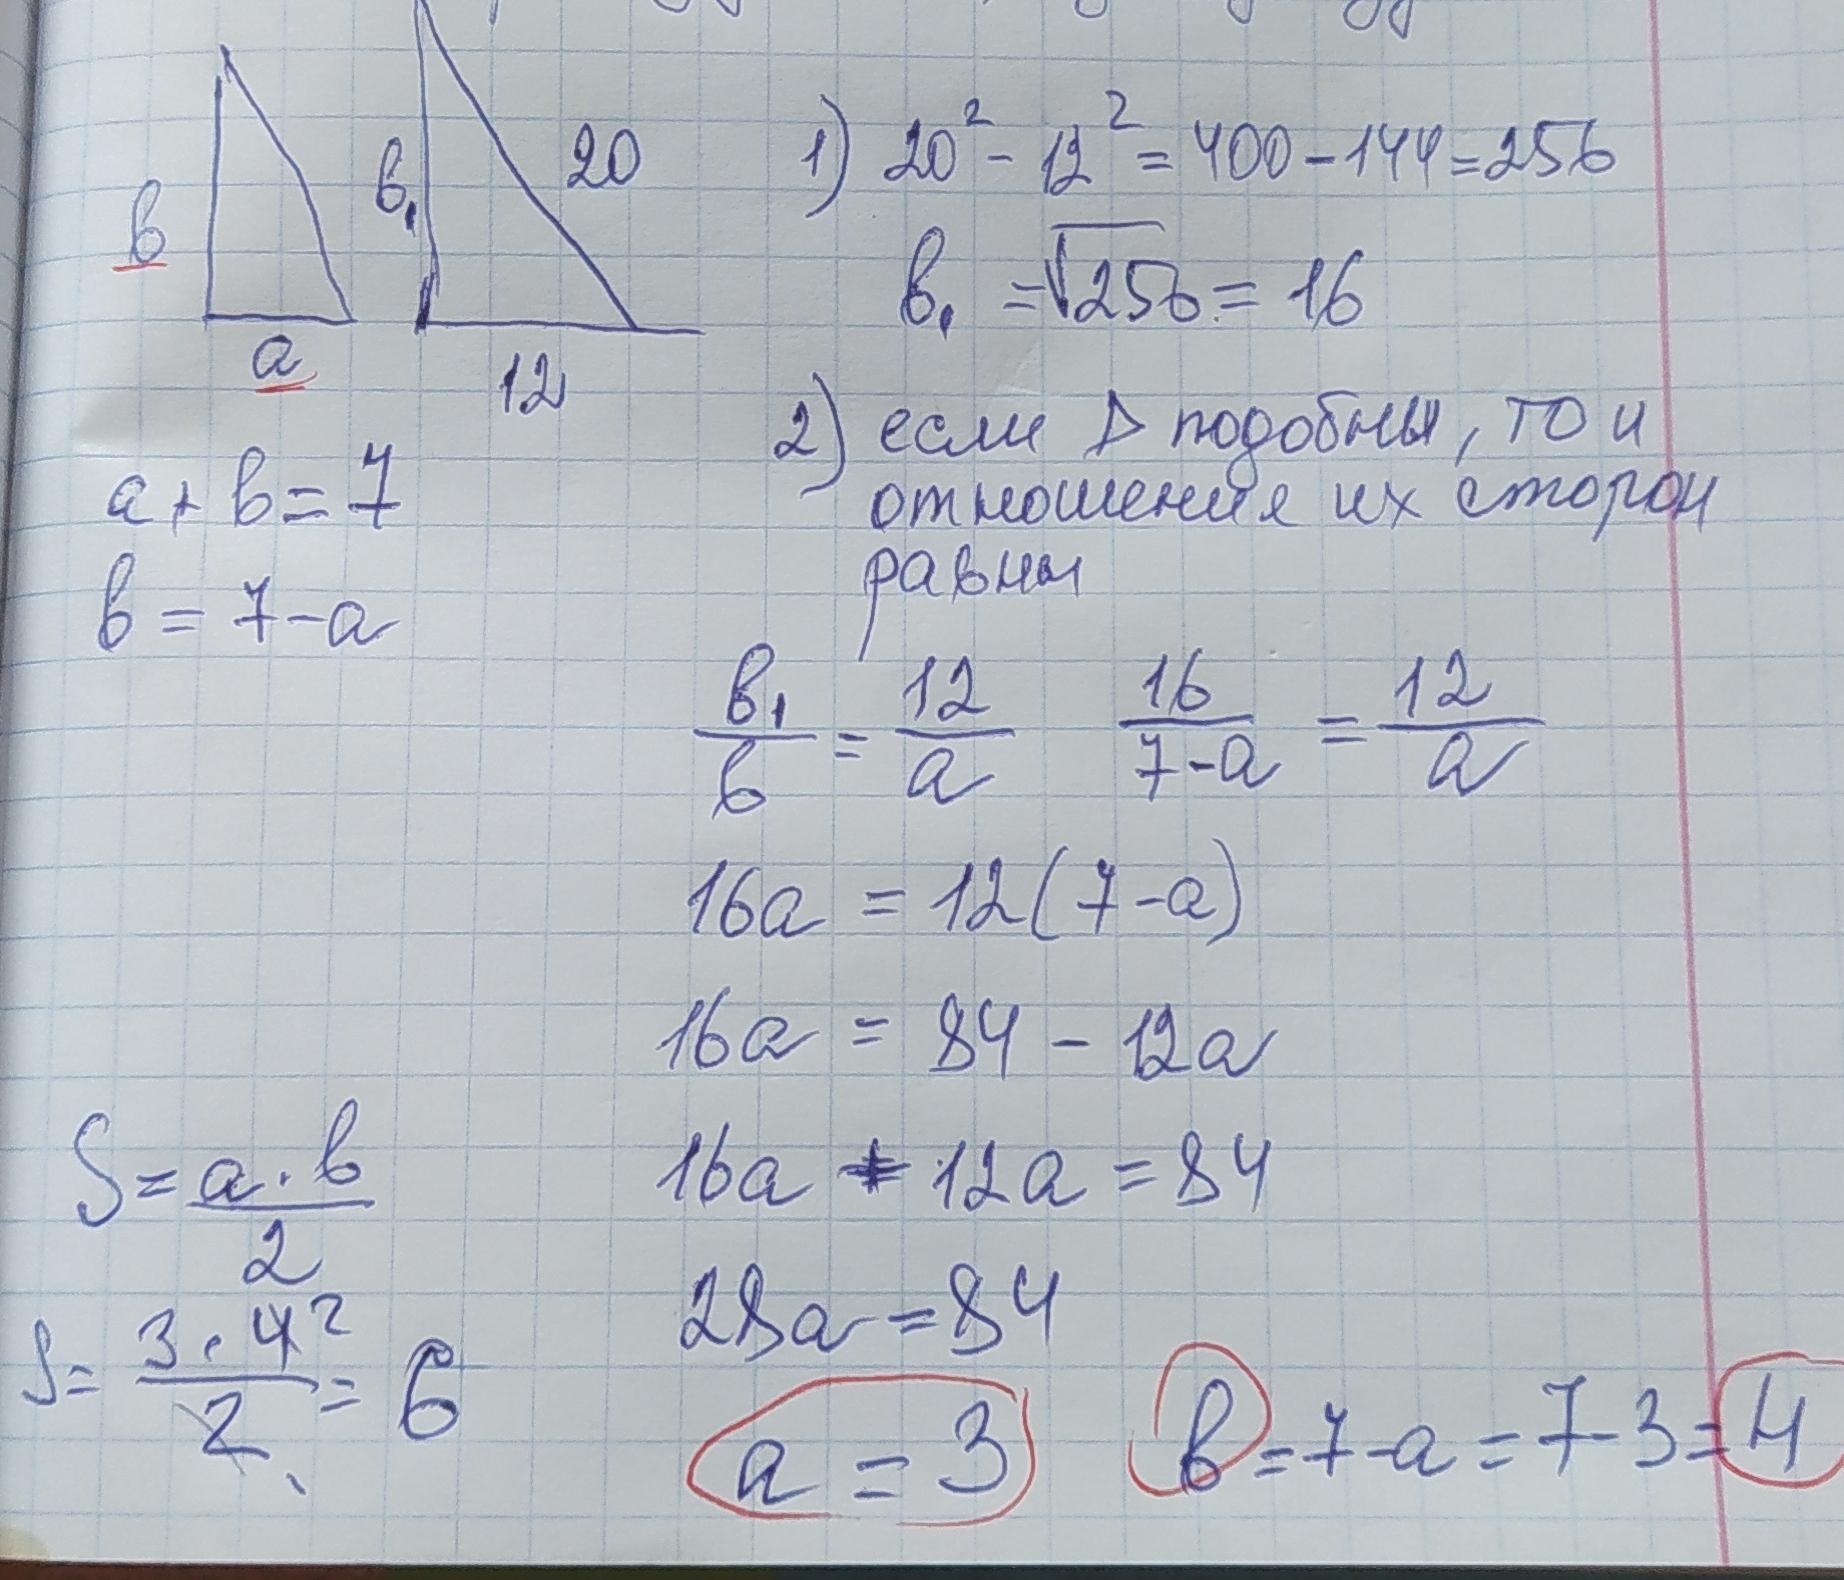 в
a
в₁
20
12
a + в = 7
в = 7 - a
1) 20² - 12² = 400 - 144 = 256
в₁ = √256 = 16
2) если Δ подобны, то и
отношения их сторон
равны
в₁/в = 12/a   16/(7-a) = 12/a
16a = 12(7-a)
16a = 84 - 12a
16a + 12a = 84
28a = 84
a = 3   в = 7-a = 7-3 = 4
S = a·в/2
S = 3·4²/2 = 6